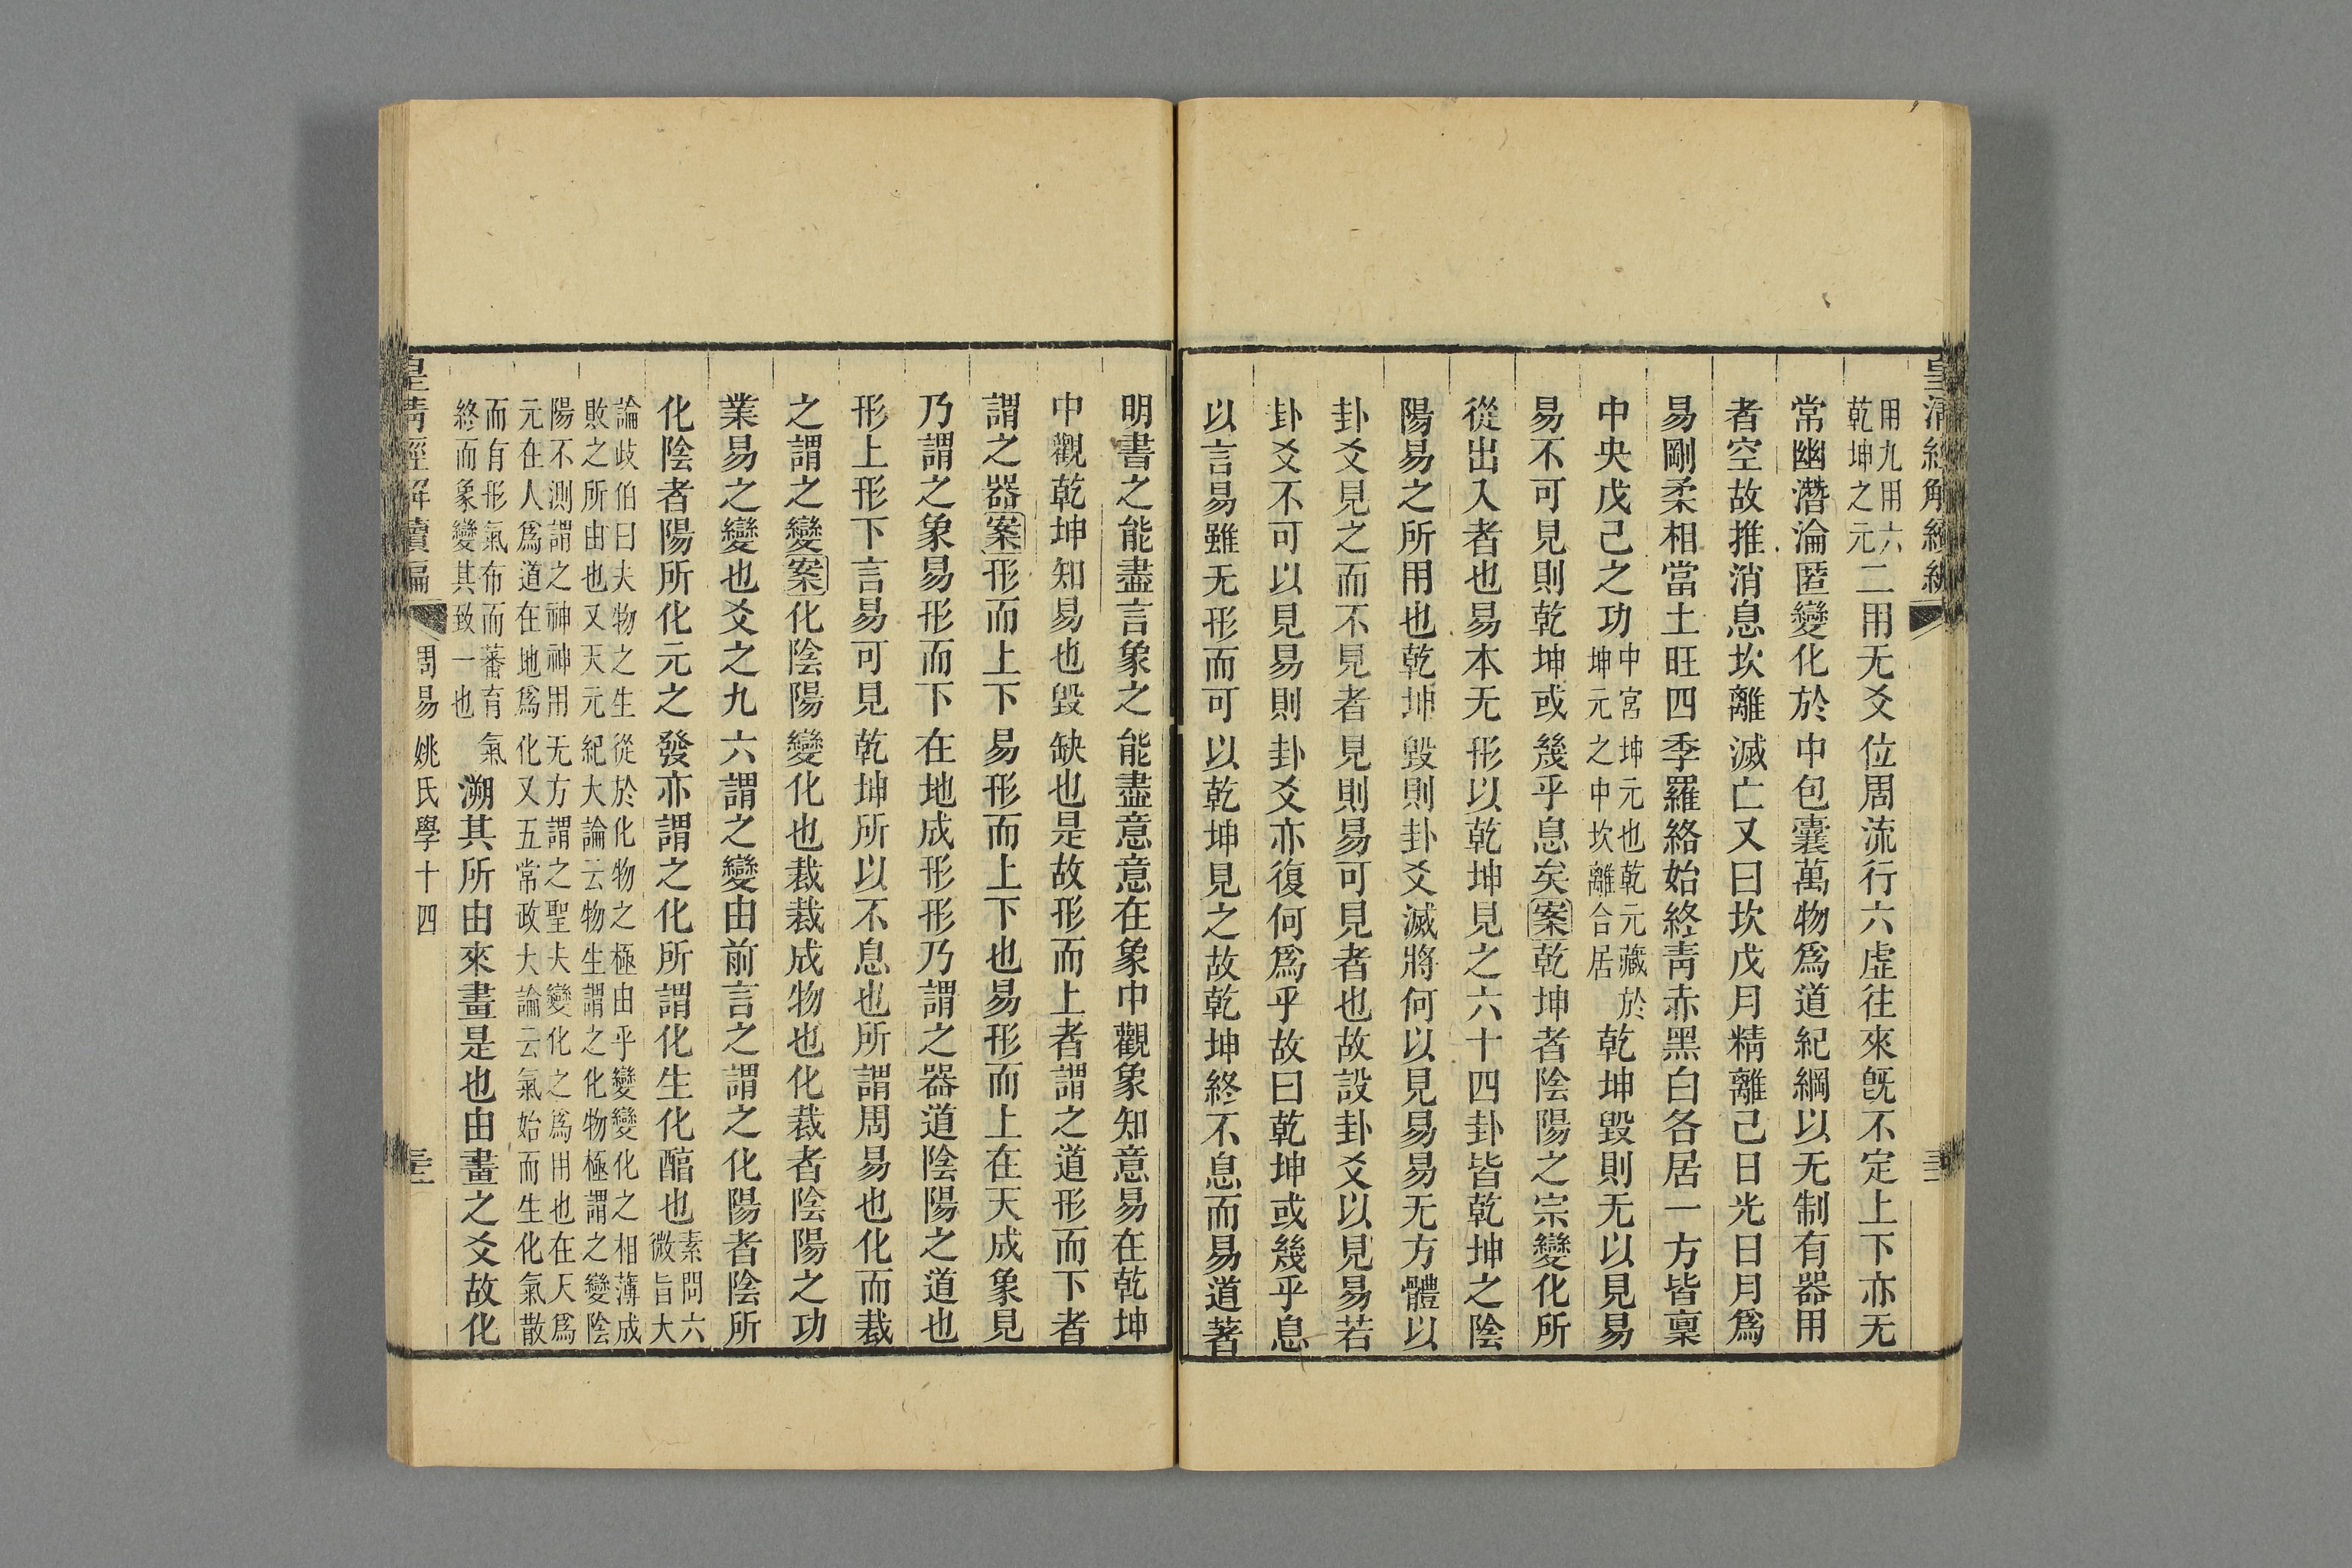 皇清經解續編
用九用六
乾坤之元
二用无爻位周流行六虛往來旣不定上下亦无
常幽潛淪匿變化於中包囊萬物爲道紀綱以无制有器用
者空故推消息坎離滅亡又曰坎戊月精離己日光日月爲
易剛柔相當土旺四季羅絡始終靑赤黑白各居一方皆稟
中央戊己之功
中宮坤元也乾元藏於
坤元之中坎離合居
乾坤毀則无以見易
易不可見則乾坤或幾乎息矣案乾坤者陰陽之宗變化所
從出入者也易本无形以乾坤見之六十四卦皆乾坤之陰
陽易之所用也乾坤毀則卦爻滅將何以見易易无方體以
卦爻見之而不見者見則易可見者也故設卦爻以見易若
卦爻不可以見易則卦爻亦復何爲乎故曰乾坤或幾乎息
以言易雖无形而可以乾坤見之故乾坤終不息而易道著
明書之能盡言象之能盡意意在象中觀象知意易在乾坤
中觀乾坤知易也毀缺也是故形而上者謂之道形而下者
謂之器案形而上下易形而上下也易形而上在天成象見
乃謂之象易形而下在地成形形乃謂之器道陰陽之道也
形上形下言易可見乾坤所以不息也所謂周易也化而裁
之謂之變案化陰陽變化也裁裁成物也化裁者陰陽之功
業易之變也爻之九六謂之變由前言之謂之化陽者陰所
化陰者陽所化元之發亦謂之化所謂化生化醕也
素問六
微旨大
論歧伯曰夫物之生從於化物之極由乎變變化之相薄成
敗之所由也又天元紀大論云物生謂之化物極謂之變陰
陽不測謂之神神用无方謂之聖夫變化之爲用也在天爲
元在人爲道在地爲化又五常政大論云氣始而生化氣散
而有形氣布而蕃育氣
終而象變其致一也
溯其所由來畫是也由畫之爻故化
皇清經解續編
周易姚氏學十四